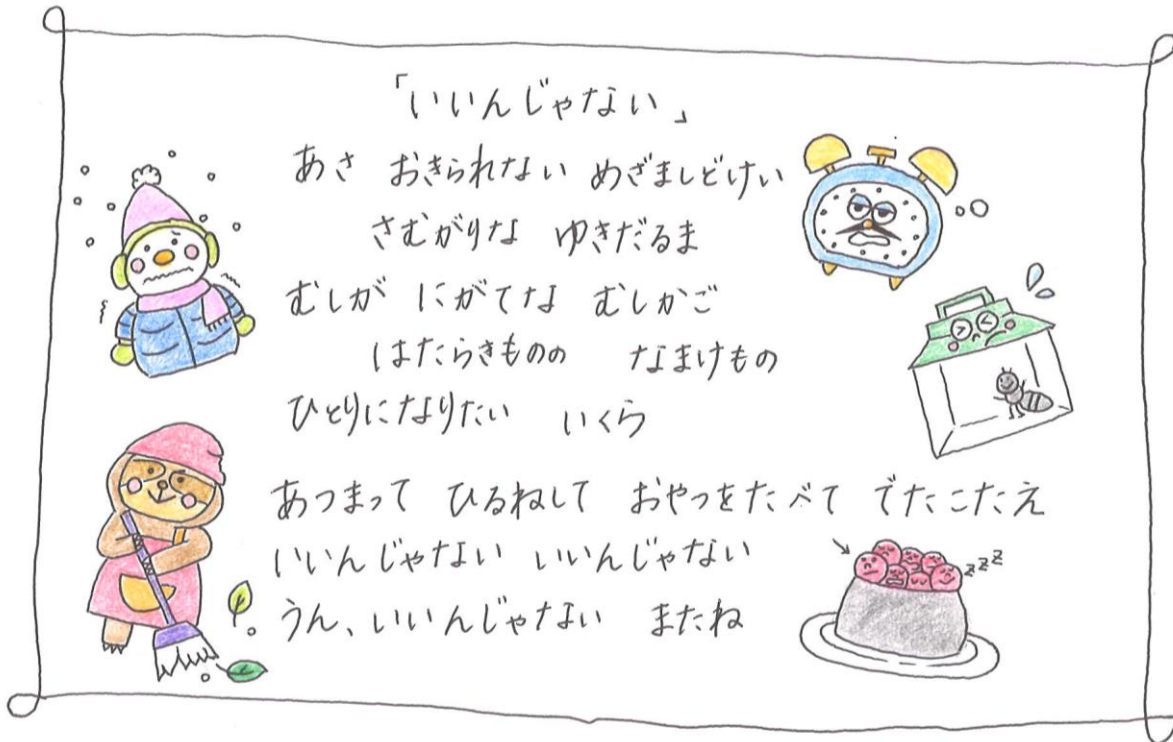 「いいんじゃない」
あさ おきられない めざましどけい
さむがりな ゆきだるま
むしが にがてな むしかご
はたらきものの なまけもの
ひとりになりたい いくら
あつまって ひるねして おやつをたべて でたこたえ
いいんじゃない いいんじゃない
うん、いいんじゃない またね
zzz